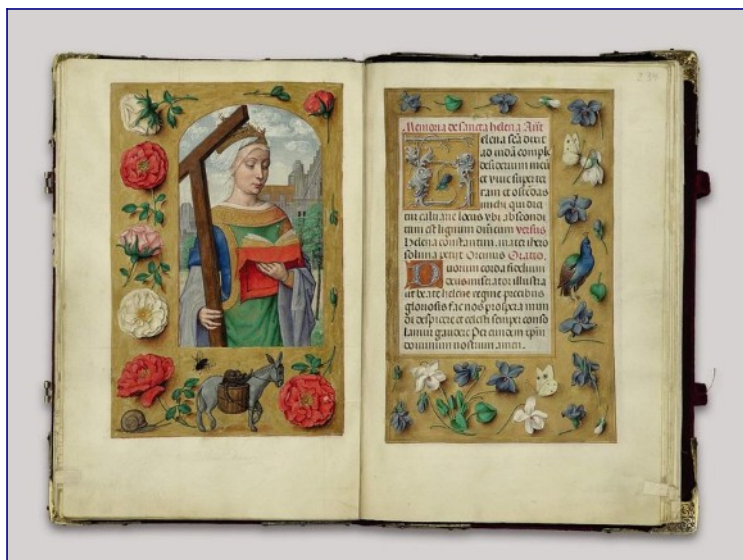 234
Memoria de sancta helena Añt
elena sc̃a dixit
ad iudã comple
desiderium meũ
et viue super ter
ram et ostẽdas
michi qui dici
tur caluarie locus vbi abscondi
tum est lignum dñicum versus
Helena constantini mater ihero
solima petiit Oremus Oratio
uorum corda fidelium
deus miserator illustra
et beate helene regine precibus
gloriosis fac nos prospera mun
di despicere et celesti semper conso
latione gaudere Per eundem xp̃m
dominum nostrum amen